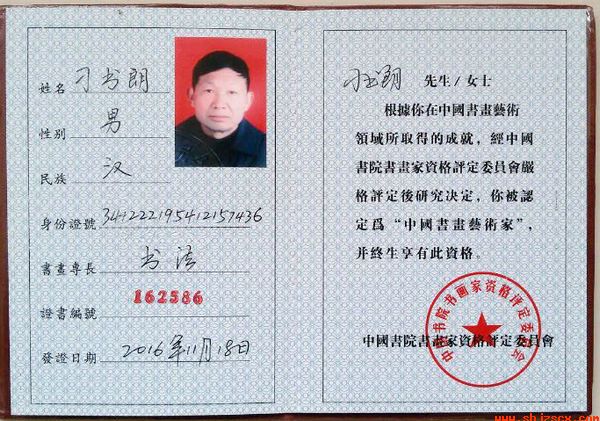 姓名 刁书朗
性别 男
民族 汉
身份證號 341222195412157436
書畫專長 书法
證書編號 162586
發證日期 2016年11月18日
刁书朗 先生/女士
根據你在中國書畫藝術
領域所取得的成就，經中國
書院書畫家資格評定委員會嚴
格評定後研究決定，你被認
定爲“中國書畫藝術家”，
并終生享有此資格。
中國書院書畫家資格評定委員會
中国书院书画家资格评定委员会
www.shjzscx.com